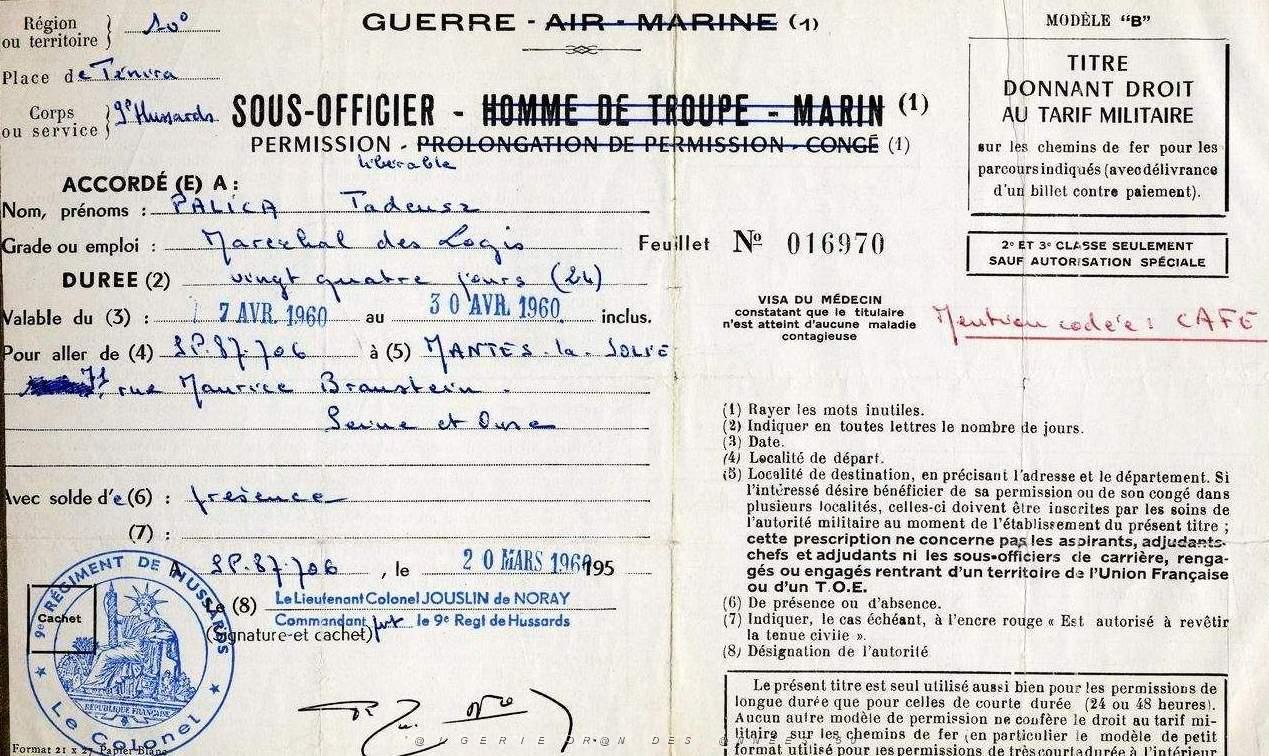 Région
ou territoire } 10°
GUERRE - AIR - MARINE (1)
Place de Ténira
Corps
ou service } 9e Hussards
SOUS-OFFICIER - HOMME DE TROUPE - MARIN (1)
PERMISSION - PROLONGATION DE PERMISSION - CONGÉ (1)
libérable
ACCORDÉ (E) A :
Nom, prénoms : PALICA Tadeusz
Grade ou emploi : Marechal des Logis
DUREE (2) vingt quatre jours (24)
Valable du (3) : 7 AVR. 1960 au 30 AVR. 1960 inclus.
Pour aller de (4) SP.87.706 à (5) MANTES-la-JOLIE
71, rue Maurice Braustein.
Seine et Oise
Avec solde d'e (6) : présence
(7) :
A SP.87.706, le 20 MARS 1960 195
Le (8) Le Lieutenant Colonel JOUSLIN de NORAY
Commandant le 9e Regt de Hussards
(Signature et cachet)
Cachet
9e RÉGIMENT DE HUSSARDS
RÉPUBLIQUE FRANÇAISE
Le Colonel
Format 21 x 27 Papier Blanc
MODÈLE "B"
TITRE
DONNANT DROIT
AU TARIF MILITAIRE
sur les chemins de fer pour les
parcours indiqués (avec délivrance
d'un billet contre paiement).
Feuillet Nº 016970
2e ET 3e CLASSE SEULEMENT
SAUF AUTORISATION SPÉCIALE
VISA DU MÉDECIN
constatant que le titulaire
n'est atteint d'aucune maladie
contagieuse
Mention codée : CAFE
(1) Rayer les mots inutiles.
(2) Indiquer en toutes lettres le nombre de jours.
(3) Date.
(4) Localité de départ.
(5) Localité de destination, en précisant l'adresse et le département. Si
l'intéressé désire bénéficier de sa permission ou de son congé dans
plusieurs localités, celles-ci doivent être inscrites par les soins de
l'autorité militaire au moment de l'établissement du présent titre ;
cette prescription ne concerne pas les aspirants, adjudants-
chefs et adjudants ni les sous-officiers de carrière, renga-
gés ou engagés rentrant d'un territoire de l'Union Française
ou d'un T.O.E.
(6) De présence ou d'absence.
(7) Indiquer, le cas échéant, à l'encre rouge « Est autorisé à revêtir
la tenue civile ».
(8) Désignation de l'autorité
Le présent titre est seul utilisé aussi bien pour les permissions de
longue durée que pour celles de courte durée (24 ou 48 heures).
Aucun autre modèle de permission ne confère le droit au tarif mi-
litaire sur les chemins de fer (en particulier le modèle de petit
format utilisé pour les permissions de très courte durée à l'intérieur